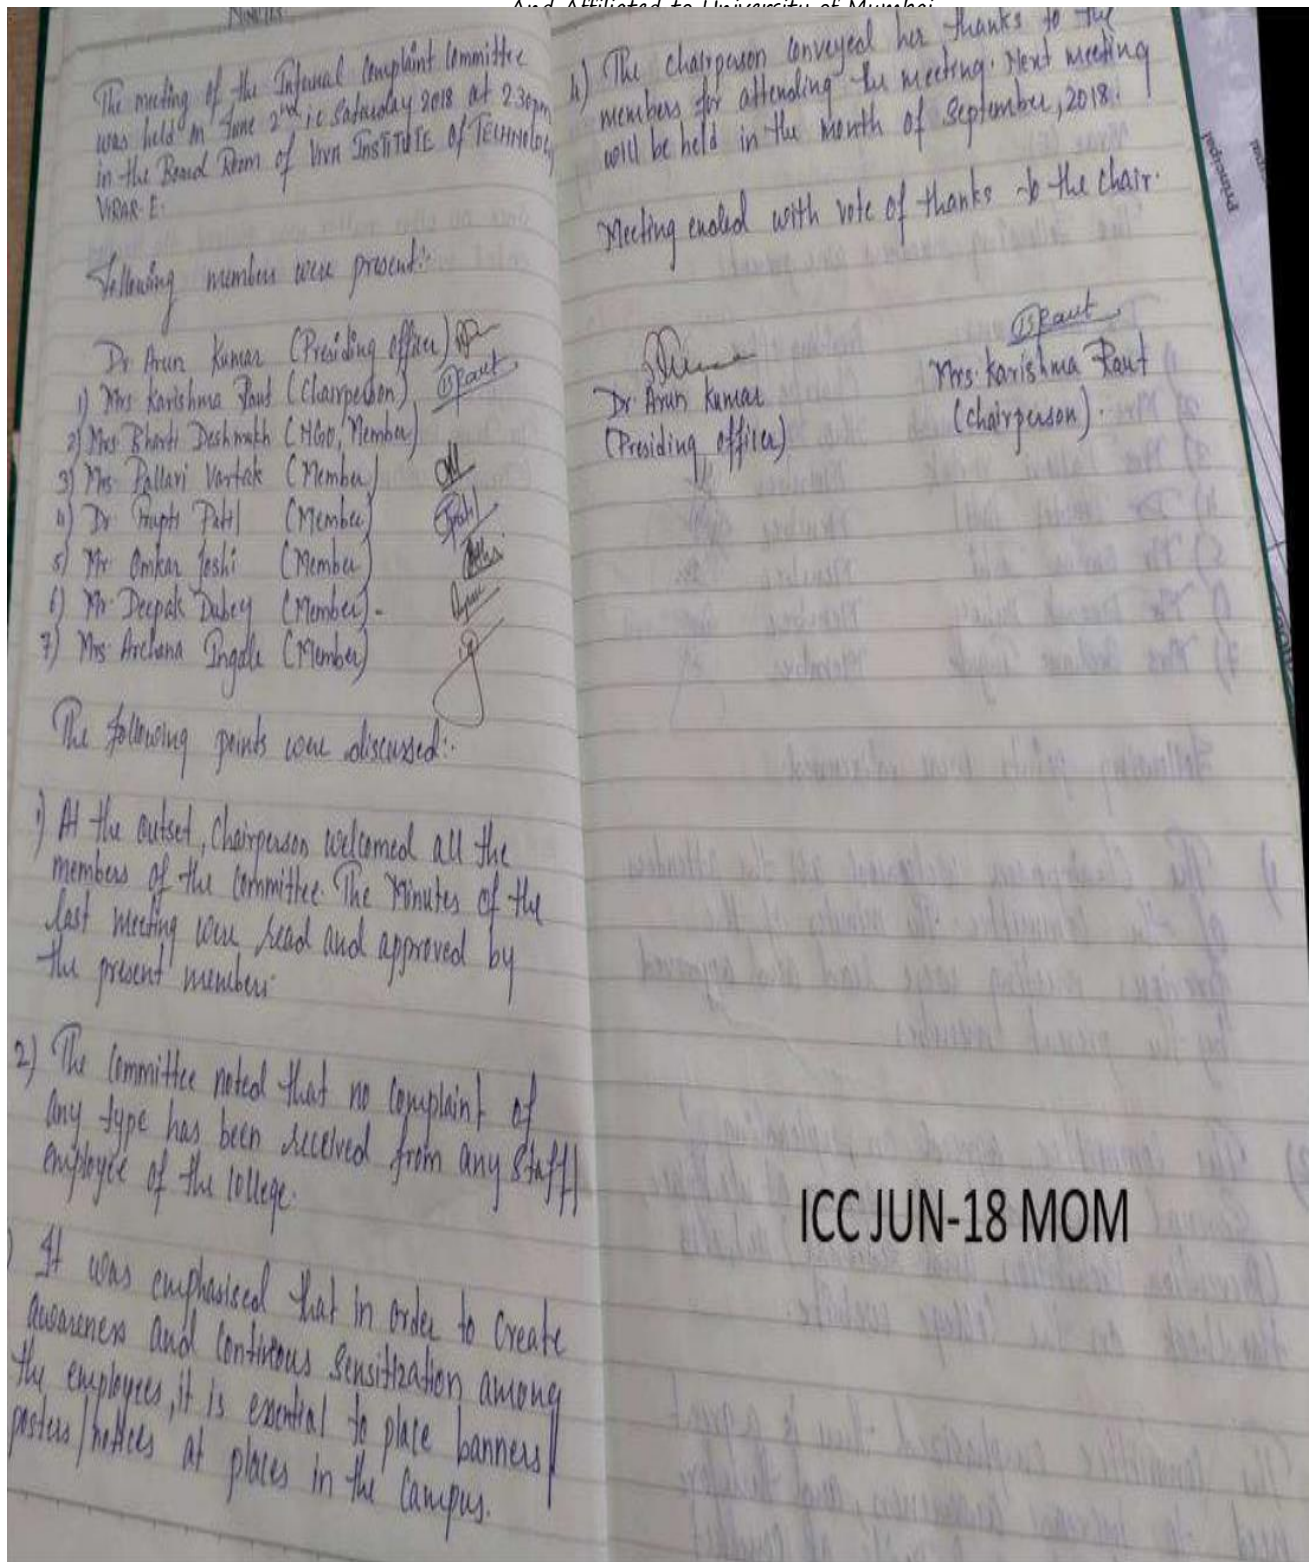 And Affiliated to University of Mumbai
MINUTES
The meeting of the Internal Complaint Committee
was held on June 2nd ie Saturday 2018 at 2.30pm
in the Board Room of VIVA INSTITUTE of TECHNOLOGY
VIRAR-E.
Following members were present:-
Dr Arun Kumar (Presiding officer)
1) Mrs Karishma Raut (Chairperson)
2) Mrs Bharti Deshmukh (NGO, Member)
3) Mrs Pallavi Vartak (Member)
4) Dr Prapti Patil (Member)
5) Mr Omkar Joshi (Member)
6) Mr Deepak Dubey (Member)-
7) Mrs Archana Ingale (Member)
The following points were discussed:-
1) At the outset, Chairperson welcomed all the
members of the Committee. The Minutes of the
last meeting were read and approved by
the present members.
2) The Committee noted that no Complaint of
any type has been received from any Staff/
employee of the College.
) It was emphasised that in order to Create
awareness and Continous Sensitization among
the employees, it is essential to place banners/
posters/notices at places in the Campus.
4) The Chairperson Conveyed her thanks to the
members for attending the meeting. Next meeting
will be held in the month of September, 2018.
Meeting ended with vote of thanks to the Chair.
Dr Arun Kumar
(Presiding officer)
Raut
Mrs. Karishma Raut
(Chairperson).
Principal
ICC JUN-18 MOM